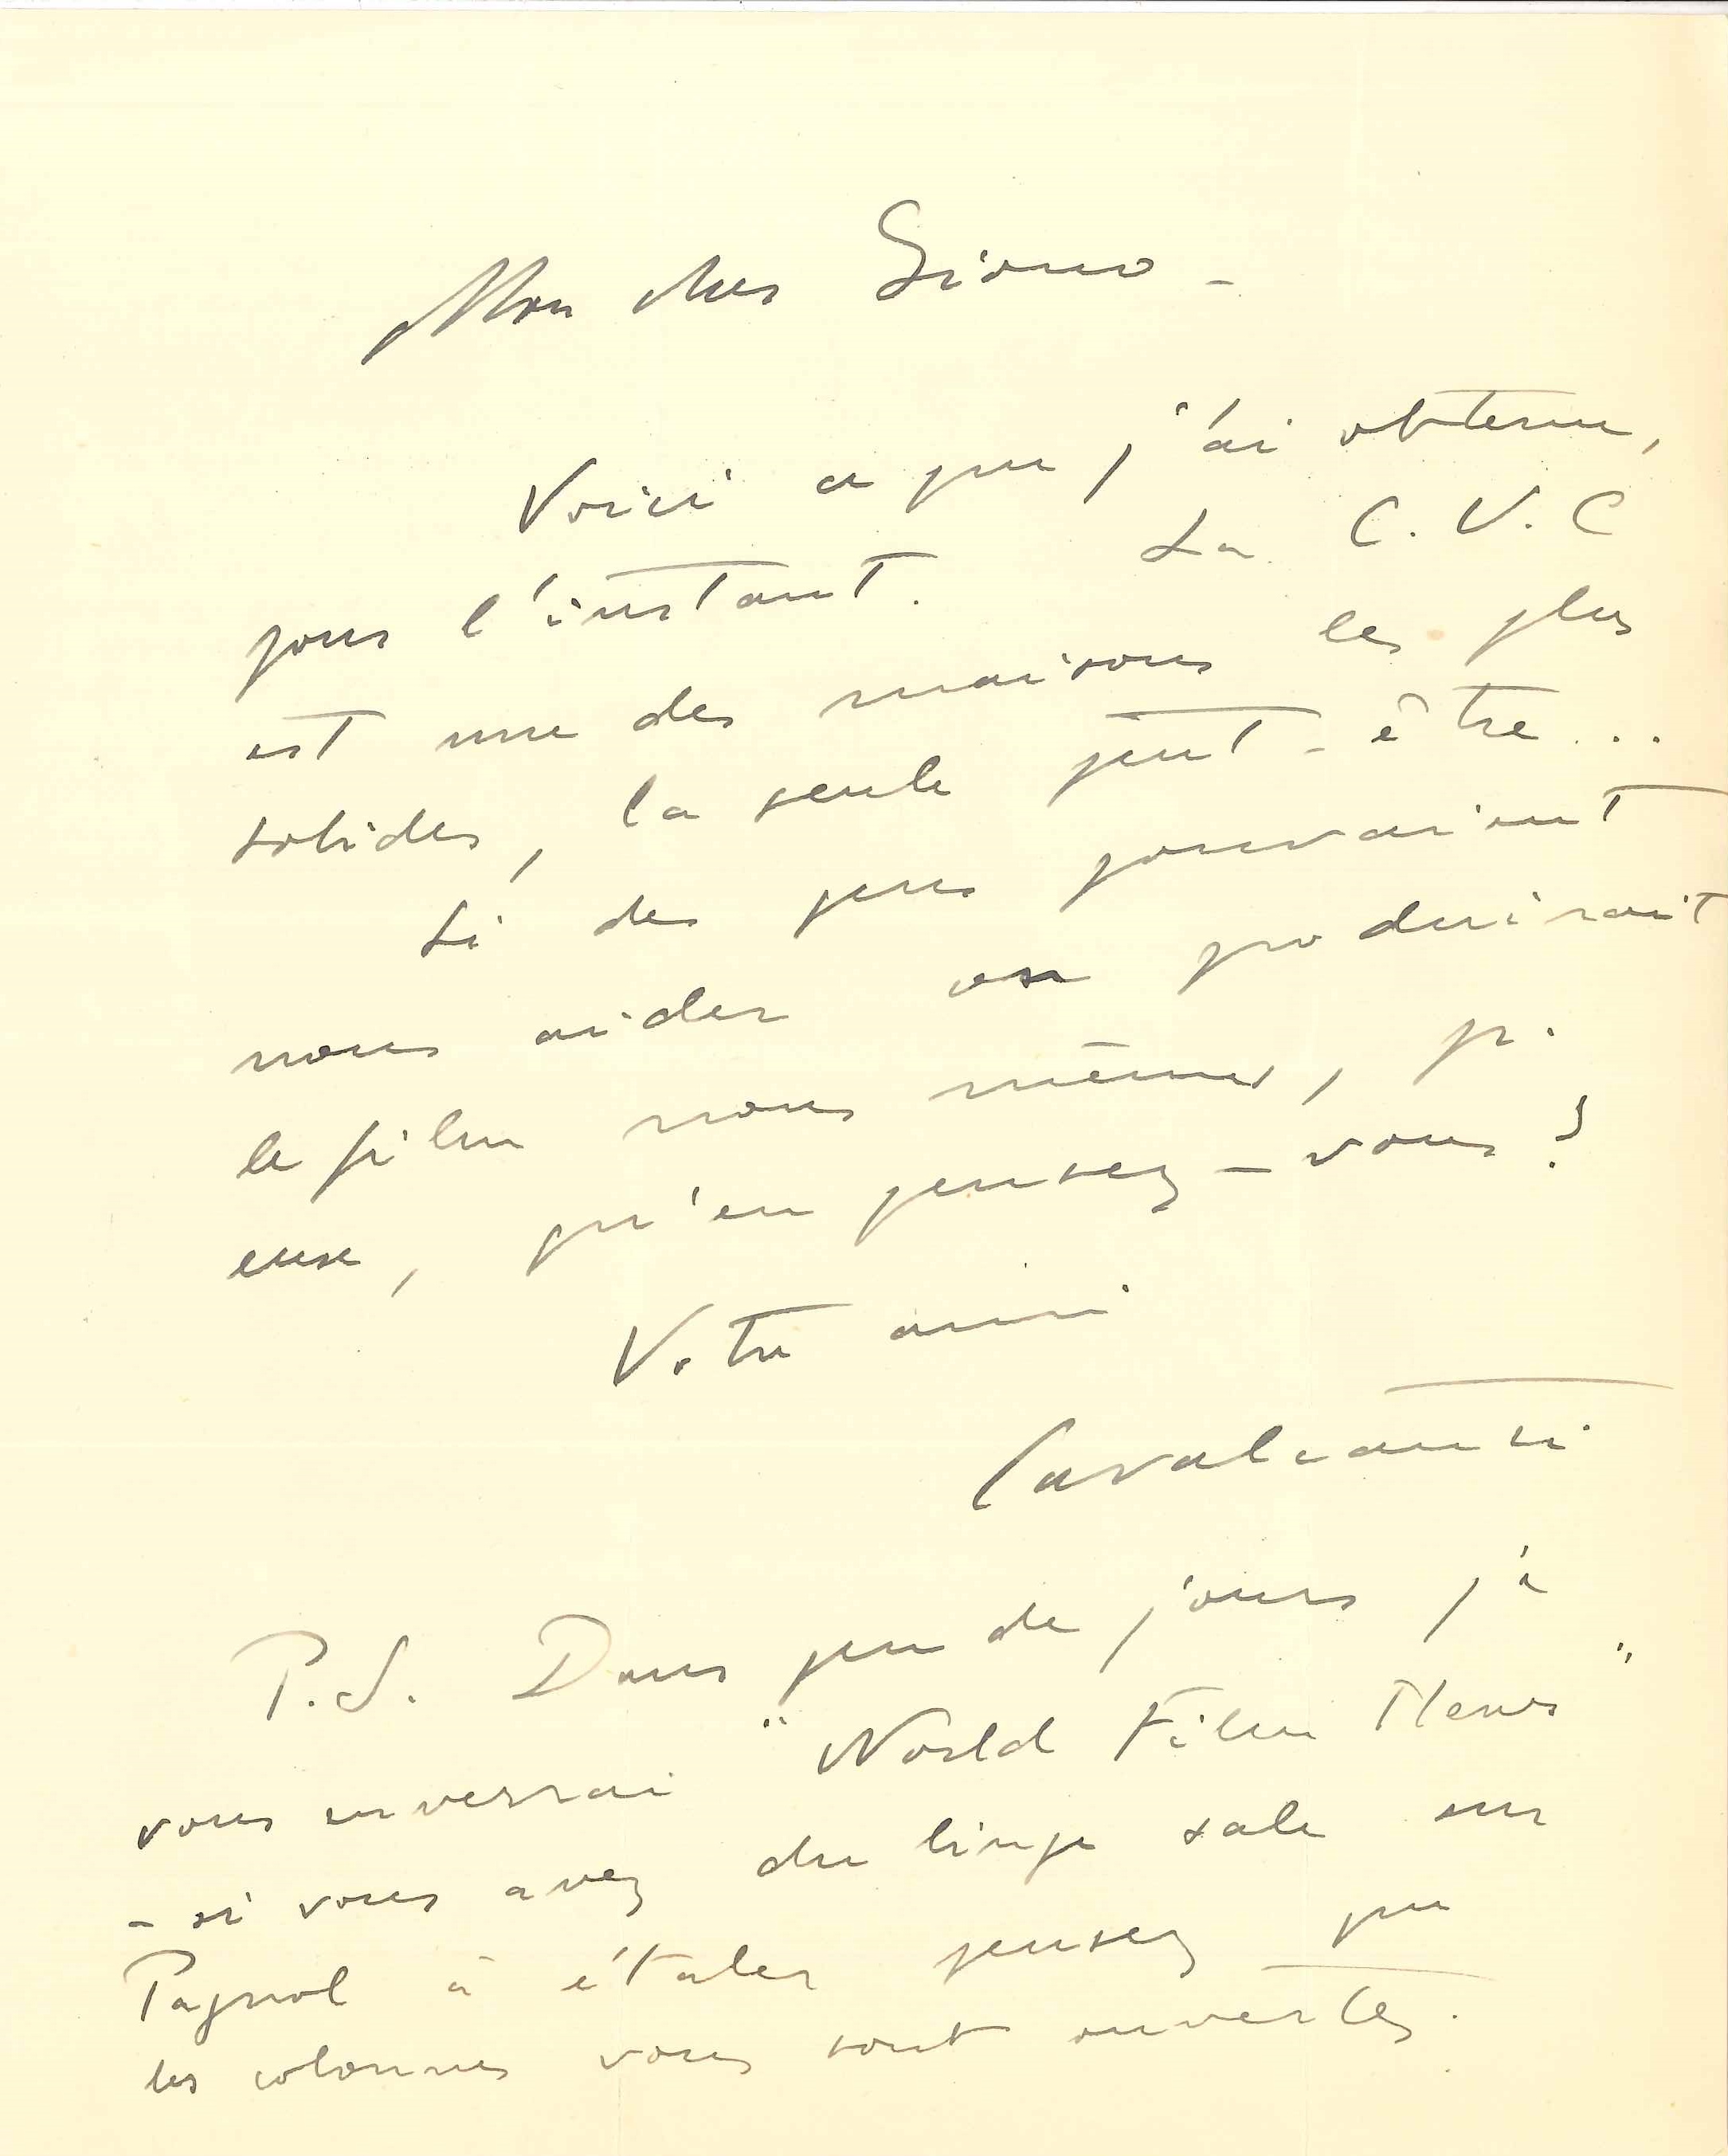 Mon cher Giono -
Voici ce que j'ai obtenu,
pour l'instant. La C.V.C
est une des maisons les plus
solides, la seule peut-être...
Si des gens pouvaient
nous aider on produirait
le film nous mêmes,
eux, qu'en pensez-vous?
Votre ami
Cavalcanti
P.S. Dans peu de jours je
vous enverrai "World Film News"
- si vous avez du linge sale sur
Pagnol à étaler pensez que
les colonnes vous sont ouvertes.